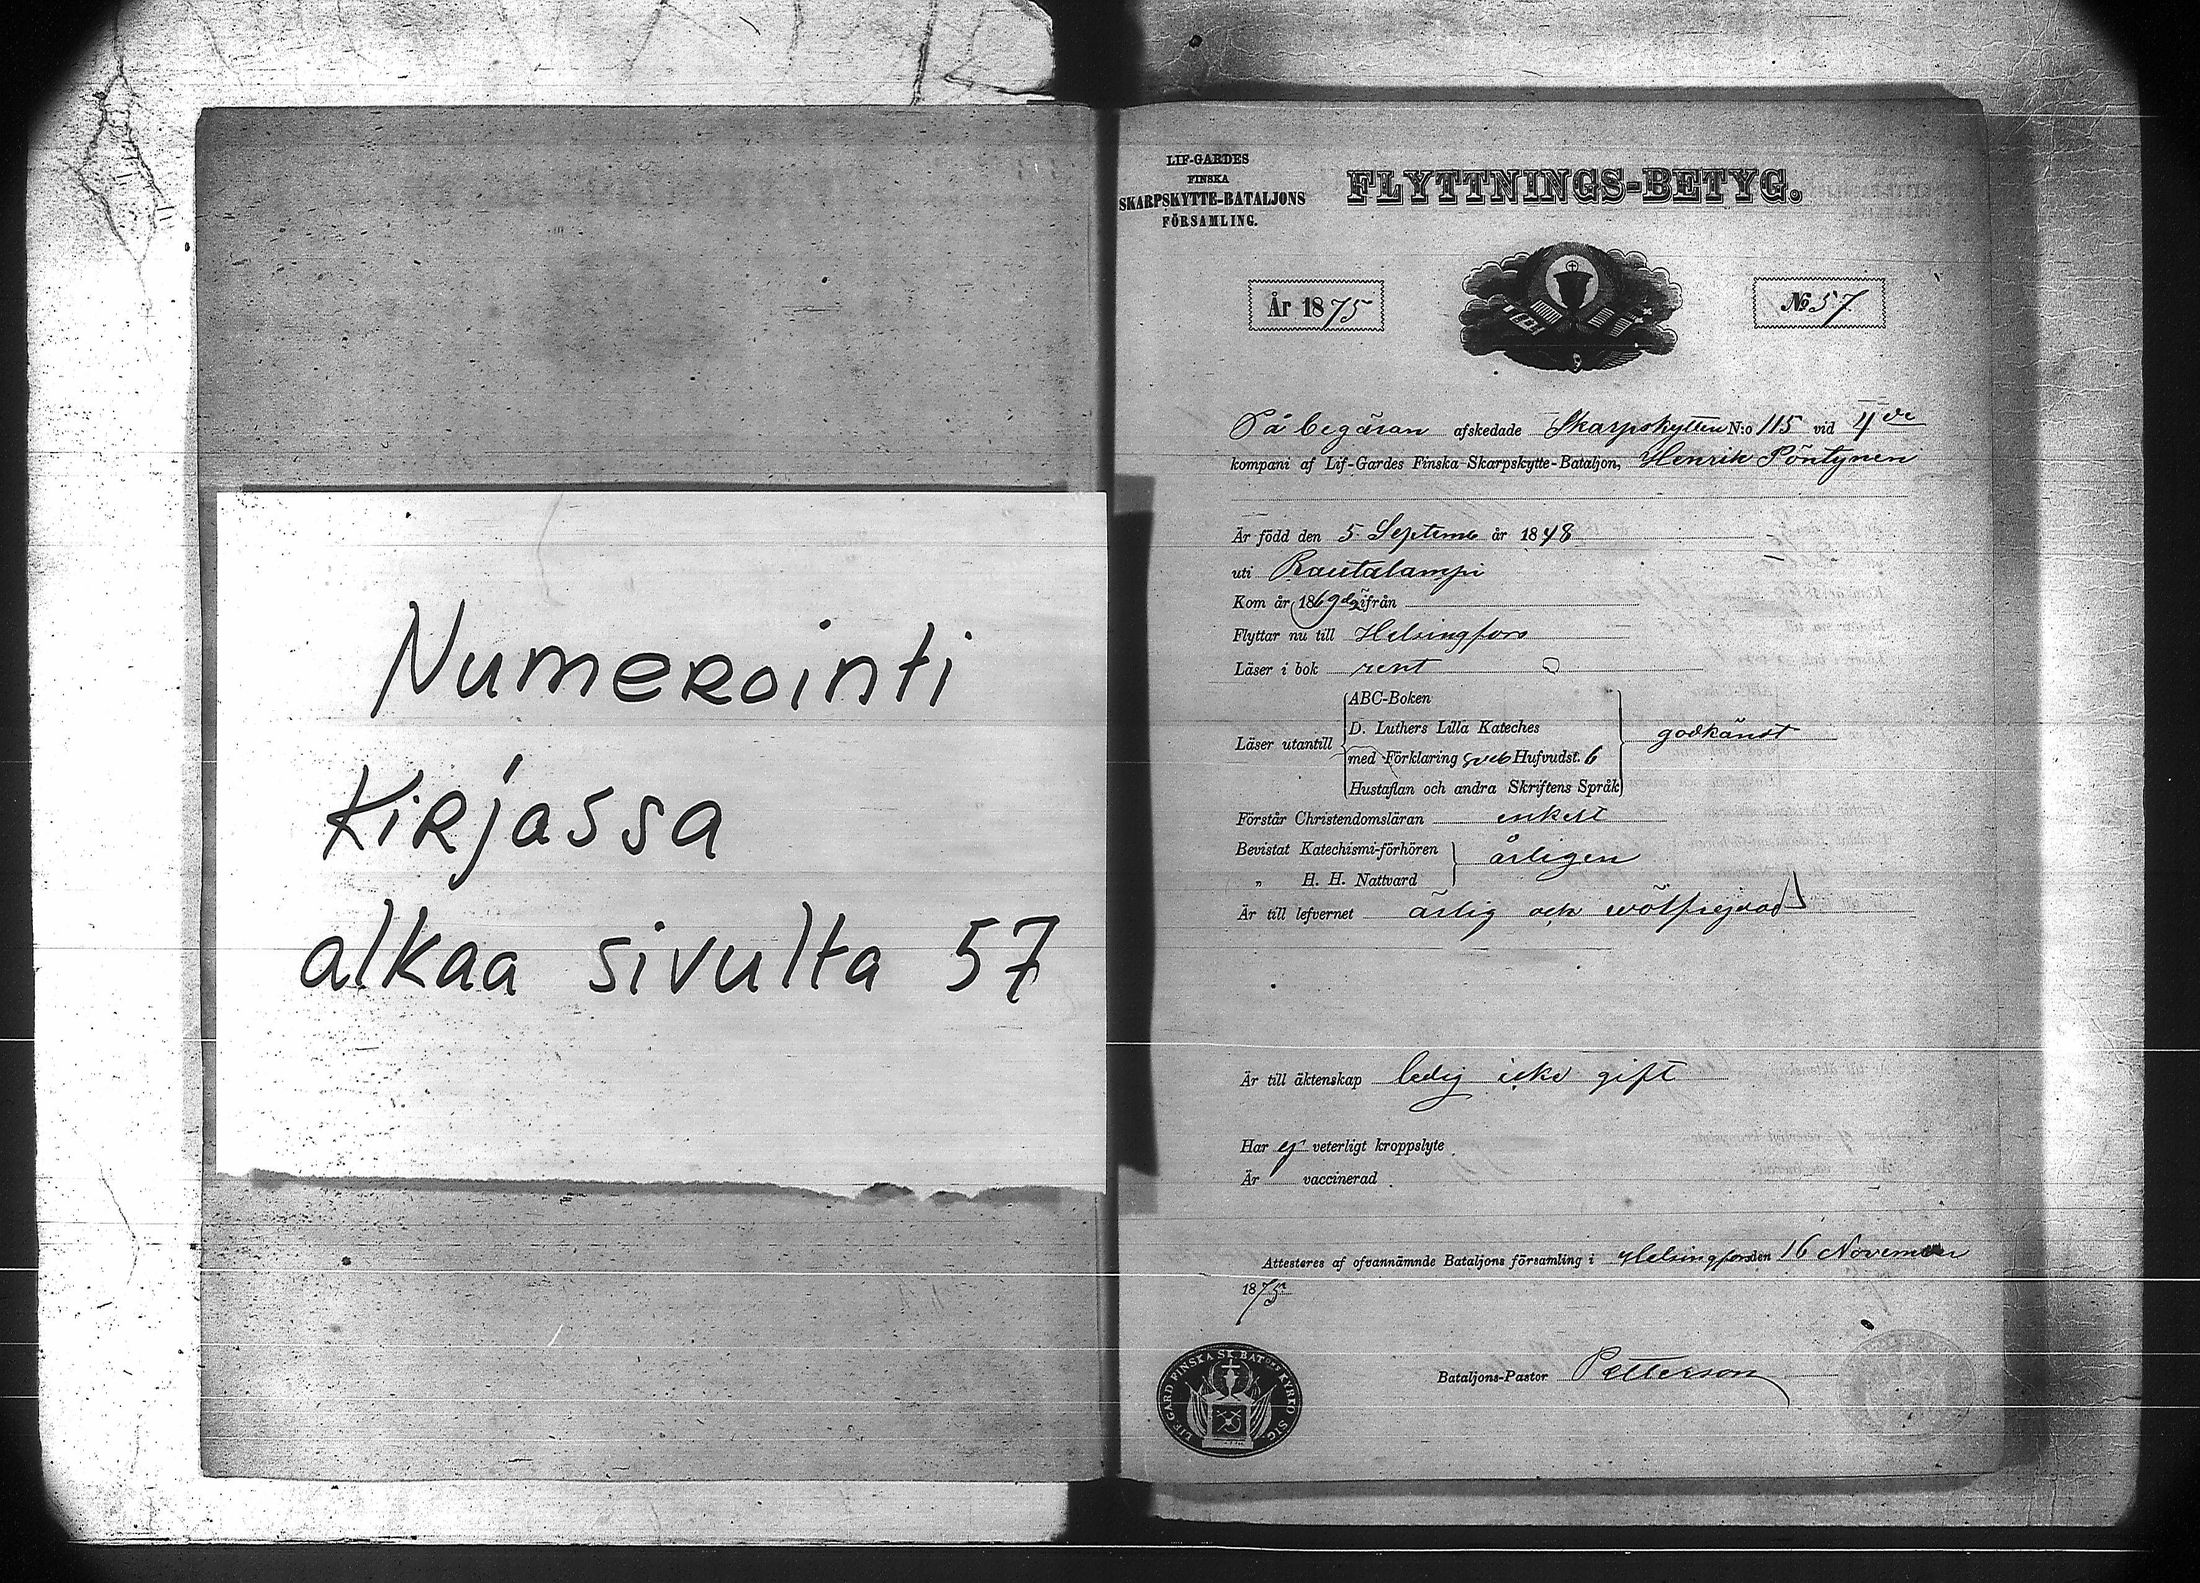 Numerointi
Kirjassa
alkaa sivulta 57
LIF-GARDES
FINSKA
SKARPSKYTTE-BATALJONS
FÖRSAMLING.
FLYTTNINGS-BETYG.
År 1875
No 57.
På begäran afskedade Skarpskytten N:o 115 vid 4de
kompani af Lif-Gardes Finska Skarpskytte-Bataljon, Henrik Pöntynen
Är född den 5 Septemb år 1848
uti Rautalampi
Kom år 1869 ifrån
Flyttar nu till Helsingfors
Läser i bok rent
Läser utantill
ABC-Boken
D. Luthers Lilla Kateches
med Förklaring Hufvudst. 6
Hustaflan och andra Skriftens Språk
godkändt
Förstår Christendomsläran enkelt
Bevistat Katechismi-förhören
„ H. H. Nattvard
årligen
Är till lefvernet ärlig och wälfrejdad
Är till äktenskap ledig icke gift
Har ej veterligt kroppslyte.
Är vaccinerad.
Attesteras af ofvannämnde Bataljons församling i Helsingfors den 16 November
1875
Bataljons-Pastor Petterson
LIF-GARD FINSKA SK. BATONS KYRKO SIG.